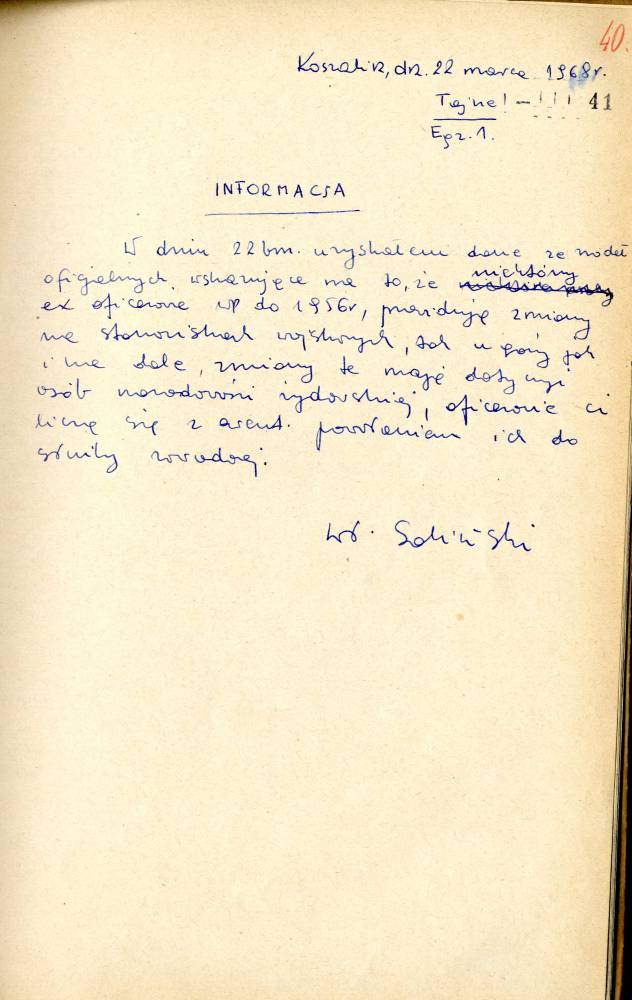 40.
Koszalin, dn. 22 marca 1968r.
Tajne! 41
Egz. 1.
INFORMACJA
W dniu 22 bm. uzyskałem dane ze źródeł
oficjalnych wskazujące na to, że niektórzy
ex oficerowie WP do 1956r, przewidują zmiany
na stanowiskach wojskowych, tak w górze jak
i na dole, zmiany te mają dotyczyć
osób narodowości żydowskiej, oficerowie ci
liczą się z ewent. powołaniem ich do
służby zawodowej.
Wł. Soliński